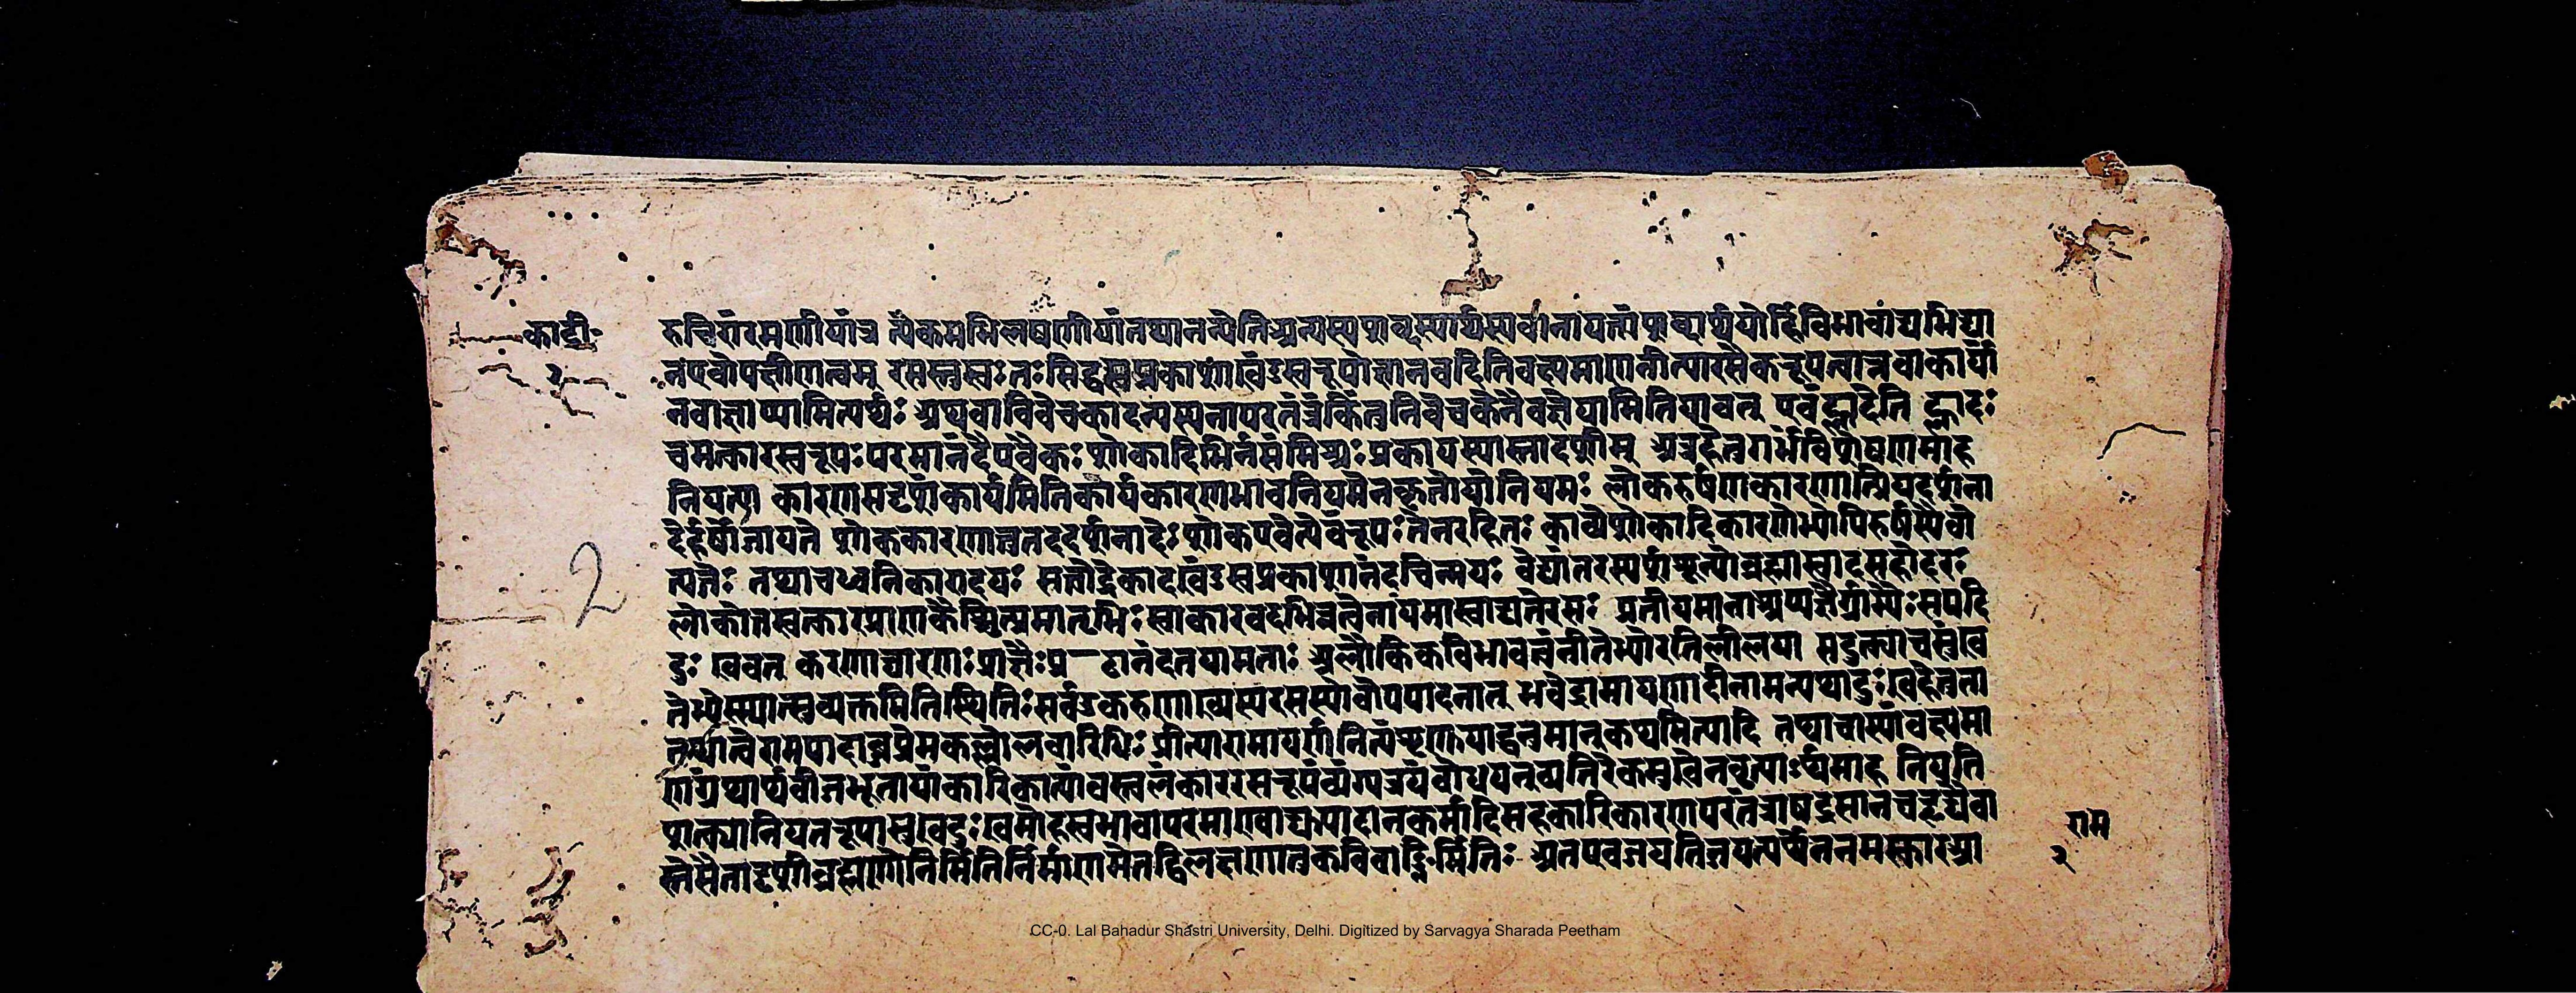 का॰दी॰
२
रुचिरांरमणीयांच त्येकमभिलषणीयांतथानन्येतिअन्यस्यशब्दस्यार्थस्यवानायत्तांशब्दार्थयोर्हिविभावाद्यभिधा
नएवोपक्षीणत्वम् रसस्तुस्वतःसिद्धस्वप्रकाशाखंडस्वरूपोज्ञानवदितिवक्ष्यमाणनीत्यारसैकरूपत्वान्नवाकार्यो
नवाज्ञाप्यामित्यर्थः अथवाविवेचकादन्यस्यनापरतंत्रंकिंतुविवेचकेनैवज्ञेयामितियावत् एवंह्लादेति ह्लादः
चमत्कारस्वरूपःपरमानंदैएवैकःशोकादिभिर्नसंमिश्रःप्रकायस्यास्तादृशीम् अत्रहेतुगर्भविशेषणमाह
नियत्या कारणसदृशंकार्यमितिकार्यकारणभावनियमेनकृतोयोनियमः लोकेहर्षणकारणात्प्रियदर्शना
देर्हर्षोजायते शोककारणात्तुतददर्शनादेःशोकएवेत्येवंरूपःतेनरहितः काव्येशोकादिकारणेभ्योपिहर्षस्यैवो
त्पत्तेः तथाचध्वनिकारादयः सत्वोद्रेकादखंडस्वप्रकाशानंदचिन्मयः वेद्यांतरस्पर्शशून्योब्रह्मास्वादसहोदरः
लोकोत्तरचमत्कारप्राणकैश्चित्प्रमातृभिःस्वाकारवदभिन्नत्वेनायमास्वाद्यतेरसः प्रतीयमानाअप्यज्ञैर्ग्राम्यैःसपदि
दुःखवत् करुणाद्यारसाःप्राज्ञैःप्र-ष्टानंदतयामताः अलौकिकविभावत्वंनीतेभ्योरतिलीलया सदुक्त्याचसुखं
तेभ्यस्स्यात्सुव्यक्तमितिस्थितिः सर्वंडकरुणाख्यस्यरसस्यैवोपपादनात् भवेद्रामायणादीनामन्यथादुःखहेतुता
तथात्वेरामपादाब्जप्रेमकल्लोलवारिधिः प्रीत्यारामायणंनित्यंशृणुयाद्धनुमान्कथमित्यादि तथाचास्यांवक्ष्यमा
णग्रंथार्थबीजभूतायांकारिकायांवस्त्वलंकाररसरूपंव्यंग्यत्रयंबोधयन्व्यतिरेकमुखेनवृत्त्यार्थमाह नियति
शक्त्यानियतरूपासुखदुःखमोहस्वभावापरमाण्वाद्युपादानकर्मादिसहकारिकारणपरतंत्राषड्रसानचहृद्यैवा
तैस्सैतादृशीब्रह्मणोनिर्मितिर्निर्माणमेतद्विलक्षणातुकविवाङ्निर्मितिः अतएवजयतिजयत्यर्थेननमस्कारआ
राम
२
2
CC-0. Lal Bahadur Shastri University, Delhi. Digitized by Sarvagya Sharada Peetham